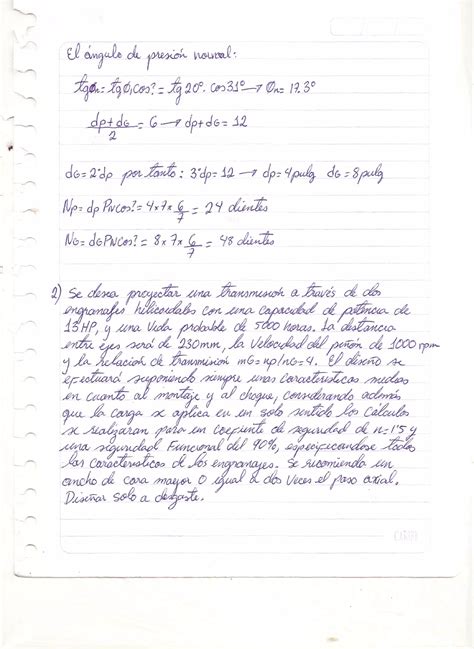 El ángulo de presión normal:
tgφn = tgφt cos? = tg 20°. cos 31° → φn = 17.3°
dp+dG / 2 = 6 → dp+dG = 12
dG = 2·dp por tanto: 3·dp = 12 → dp = 4 pulg dG = 8 pulg
Np = dp PN cos? = 4x7x 6/7 = 24 dientes
NG = dG PN cos? = 8x7x 6/7 = 48 dientes
2) Se desea proyectar una transmisión a través de dos
engranajes helicoidales con una capacidad de potencia de
13 HP, y una vida probable de 5000 horas. La distancia
entre ejes será de 230mm, la velocidad del piñón de 1000 rpm
y la relación de transmisión mG = np/nG = 4. El diseño se
efectuará suponiendo siempre unas características medias
en cuanto al montaje y al choque, considerando además
que la carga se aplica en un solo sentido los cálculos
se realizaran para un coeficiente de seguridad de n = 1'5 y
una seguridad Funcional del 90%, especificandose todas
las características de los engranajes. Se recomienda un
ancho de cara mayor o igual a dos veces el paso axial.
Diseñar solo a desgaste.